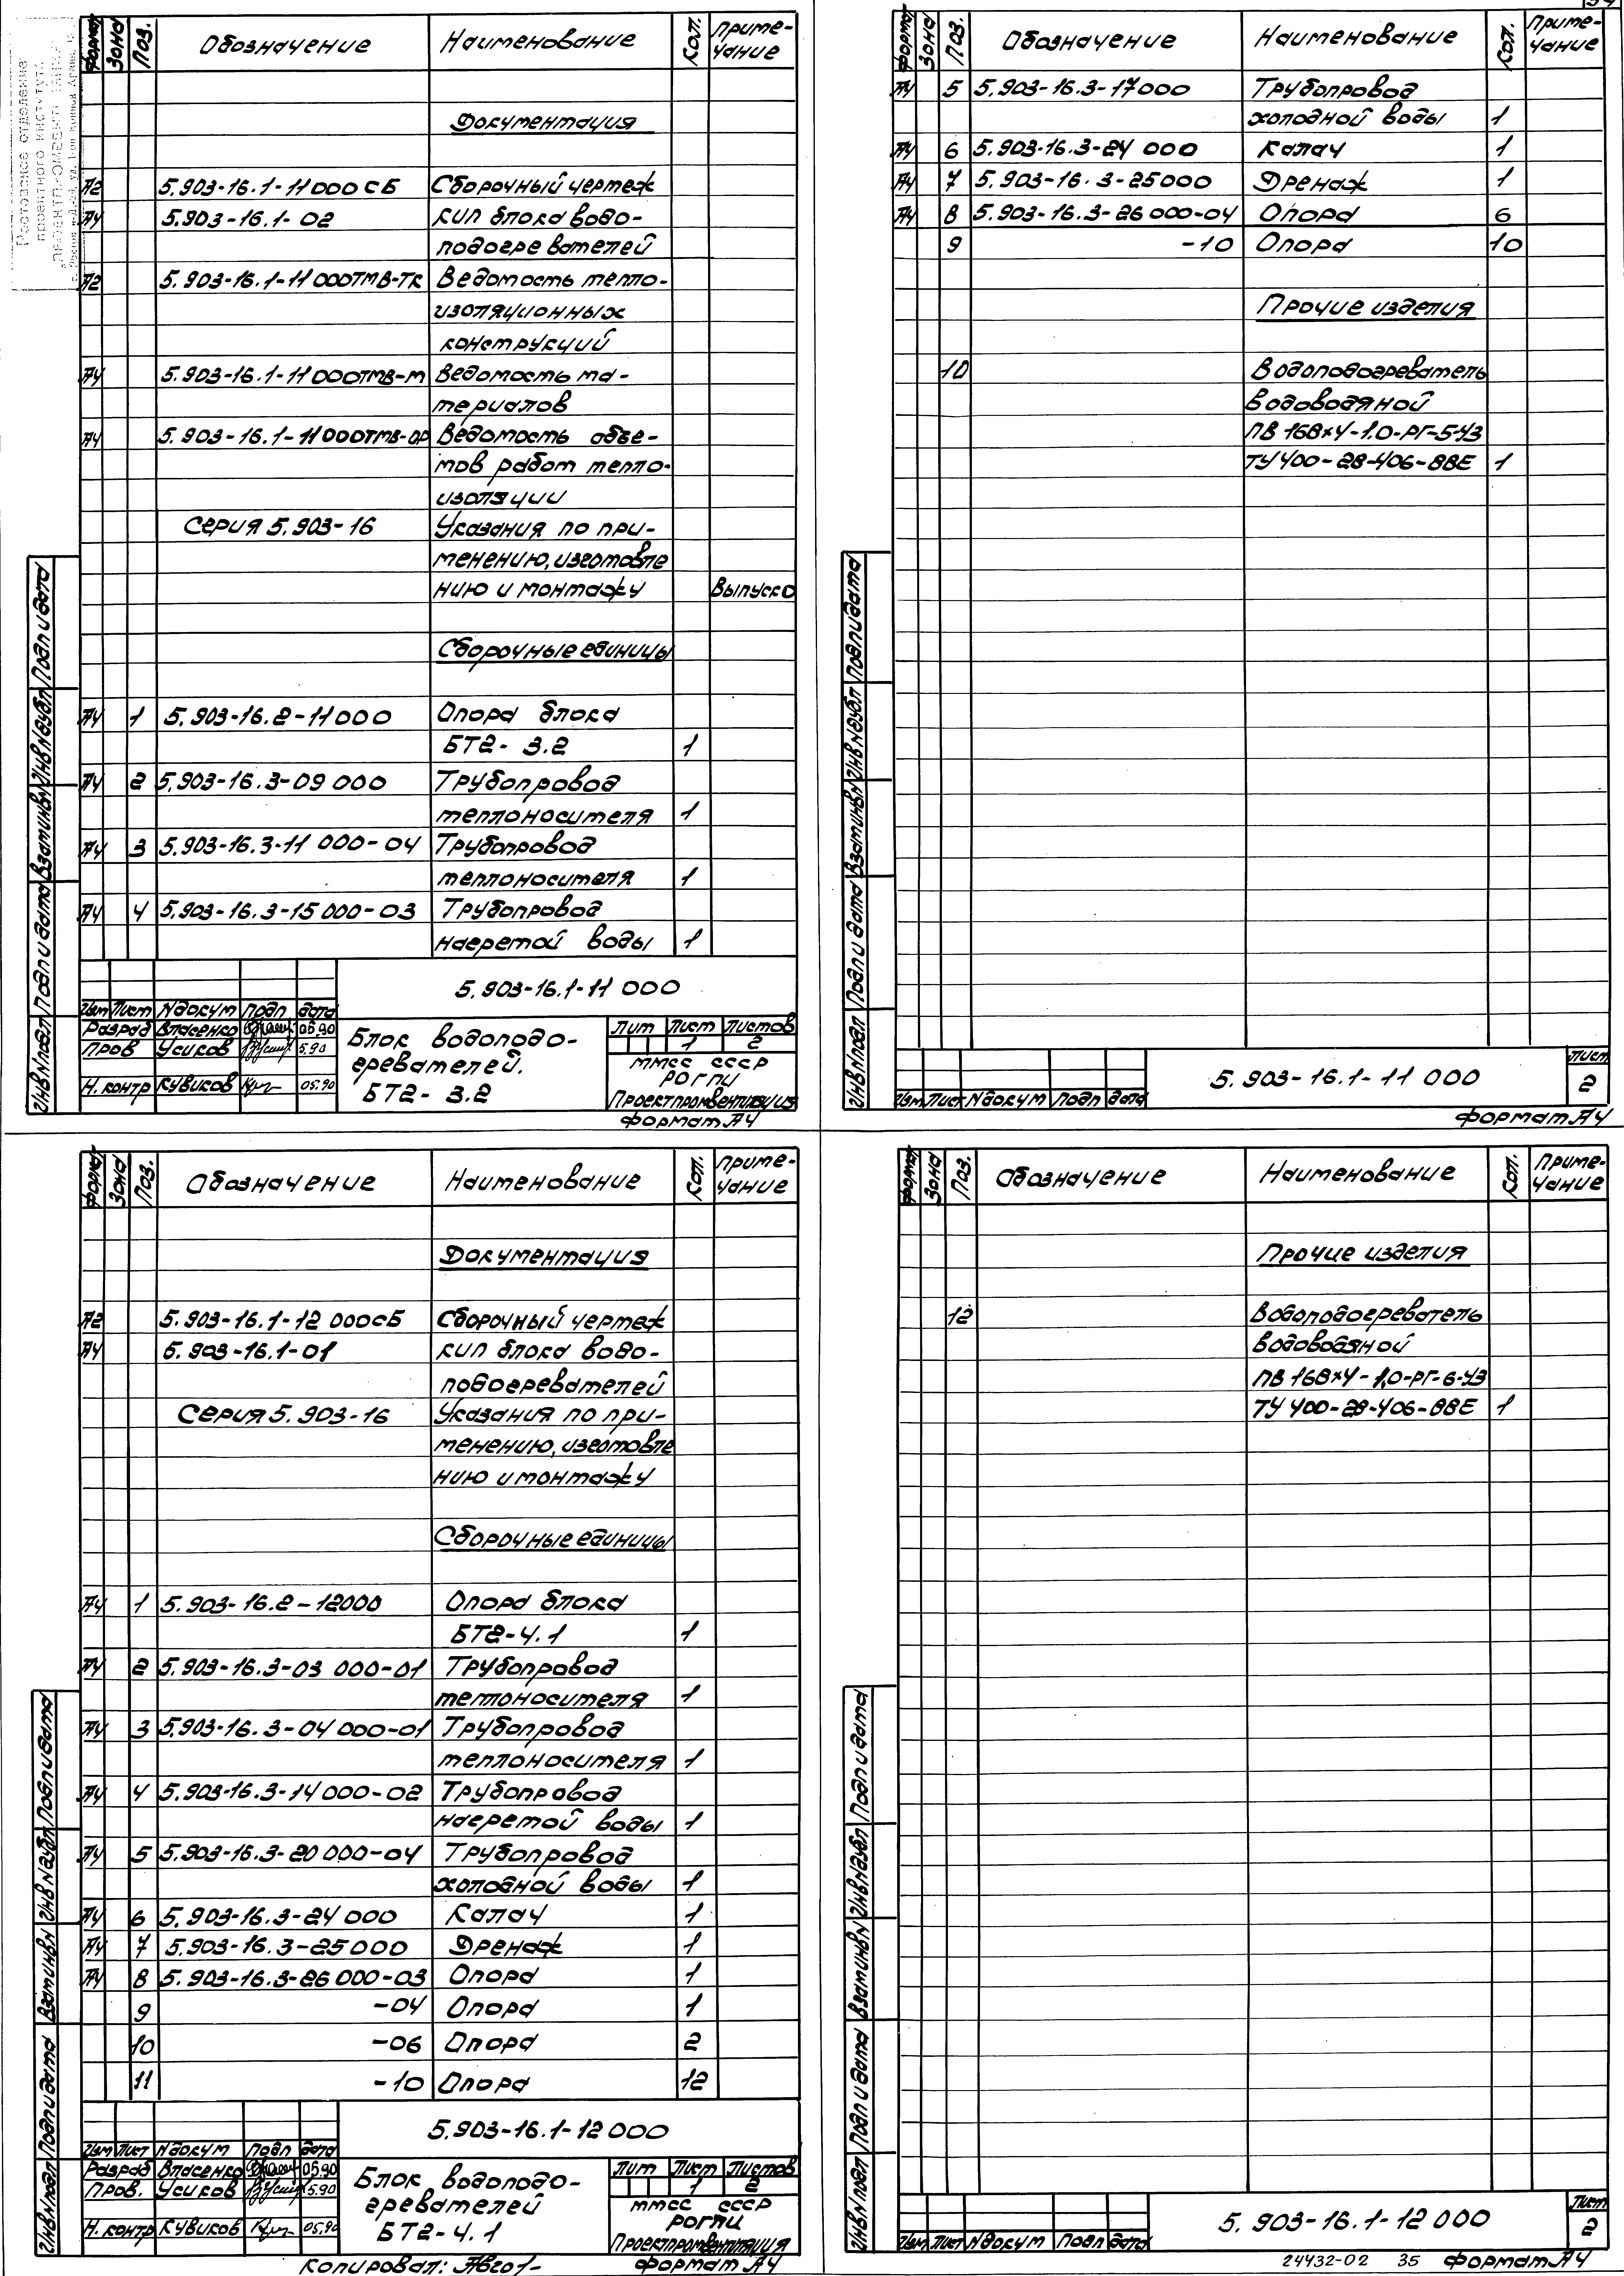 Формат Зона Поз. Обозначение Наименование Кол. Приме-
чание
Документация
А2 5.903-16.1-11 000 СБ Сборочный чертеж
А4 5.903-16.1-02 КИП блока водо-
подогревателей
А2 5.903-16.1-11 000ТМВ-ТК Ведомость тепло-
изоляционных
конструкций
А4 5.903-16.1-11 000ТМВ-М Ведомость ма-
териалов
А4 5.903-16.1-11 000ТМВ-ОР Ведомость объе-
мов работ тепло-
изоляции
Серия 5.903-16 Указания по при-
менению, изготовле
нию и монтажу Выпуск 0
Сборочные единицы
А4 1 5.903-16.2-11 000 Опора блока
БТ2-3.2 1
А4 2 5.903-16.3-09 000 Трубопровод
теплоносителя 1
А4 3 5.903-16.3-11 000-04 Трубопровод
теплоносителя 1
А4 4 5.903-16.3-15 000-03 Трубопровод
нагретой воды 1
5.903-16.1-11 000
Изм Лист N докум Подп Дата
Разраб Власенко 05.90
Пров Усиков 5.90
Н. контр Кувиков 05.90
Блок водоподо-
гревателей.
БТ2-3.2
Лит Лист Листов
1 2
ММСС СССР
РОГПИ
Проектпромвентиляция
Формат А4
Инв N подл Подп и дата Взам инв N Инв N дубл Подп и дата
Формат Зона Поз. Обозначение Наименование Кол. Приме-
чание
А4 5 5.903-16.3-17 000 Трубопровод
холодной воды 1
А4 6 5.903-16.3-24 000 Калач 1
А4 7 5.903-16.3-25 000 Дренаж 1
А4 8 5.903-16.3-26 000-04 Опора 6
9 -10 Опора 10
Прочие изделия
10 Водоподогреватель
водоводяной
ПВ 168х4-1.0-РГ-5-УЗ
ТУ 400-28-406-88Е 1
Изм Лист N докум Подп Дата
5.903-16.1-11 000
Лист
2
Формат А4
Инв N подл Подп и дата Взам инв N Инв N дубл Подп и дата
Формат Зона Поз. Обозначение Наименование Кол. Приме-
чание
Документация
А2 5.903-16.1-12 000СБ Сборочный чертеж
А4 5.903-16.1-01 КИП блока водо-
подогревателей
Серия 5.903-16 Указания по при-
менению, изготовле
нию и монтажу
Сборочные единицы
А4 1 5.903-16.2-12000 Опора блока
БТ2-4.1 1
А4 2 5.903-16.3-03 000-01 Трубопровод
теплоносителя 1
А4 3 5.903-16.3-04 000-01 Трубопровод
теплоносителя 1
А4 4 5.903-16.3-14 000-02 Трубопровод
нагретой воды 1
А4 5 5.903-16.3-20 000-04 Трубопровод
холодной воды 1
А4 6 5.903-16.3-24 000 Калач 1
А4 7 5.903-16.3-25 000 Дренаж 1
А4 8 5.903-16.3-26 000-03 Опора 1
9 -04 Опора 1
10 -06 Опора 2
11 -10 Опора 12
5.903-16.1-12 000
Изм Лист N докум Подп Дата
Разраб Власенко 05.90
Пров. Усиков 5.90
Н. контр Кувиков 05.90
Блок водоподо-
гревателей
БТ2-4.1
Лит Лист Листов
1 2
ММСС СССР
РОГПИ
Проектпромвентиляция
Копировал:
Формат А4
Инв N подл Подп и дата Взам инв N Инв N дубл Подп и дата
Формат Зона Поз. Обозначение Наименование Кол. Приме-
чание
Прочие изделия
12 Водоподогреватель
водоводяной
ПВ 168х4-1,0-РГ-6-УЗ
ТУ 400-28-406-88Е 1
Изм Лист N докум Подп Дата
5.903-16.1-12 000
Лист
2
24432-02 35 Формат А4
Инв N подл Подп и дата Взам инв N Инв N дубл Подп и дата